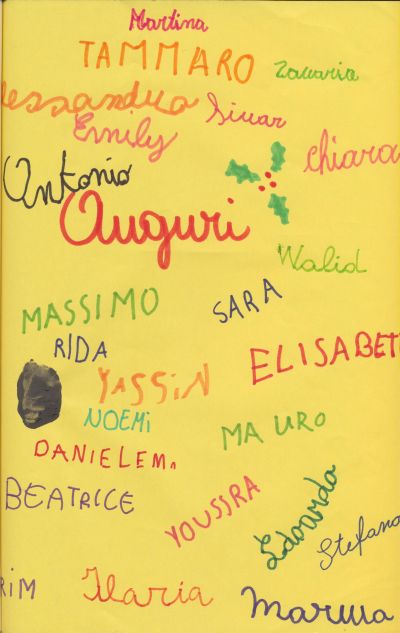 Martina
TAMMARO
Zaccaria
essandra
Sivar
Emily
Chiara
Antonio
Auguri
Walid
MASSIMO
SARA
RIDA
ELISABET
YASSiN
NOEMi
MAURO
DANIELEM.
BEATRICE
YOUSSRA
Edoardo
Stefano
RIM
Ilaria
Marwa